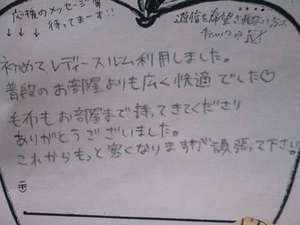 応援のメッセージ等
待ってまーす!!
返信を希望されない方は
チェック
初めてレディースルム利用しました。
普段のお部屋よりも広く快適でした
毛布もお部屋まで持ってきてくださり
ありがとうございました。
これからもっと寒くなりますが頑張って下さい。